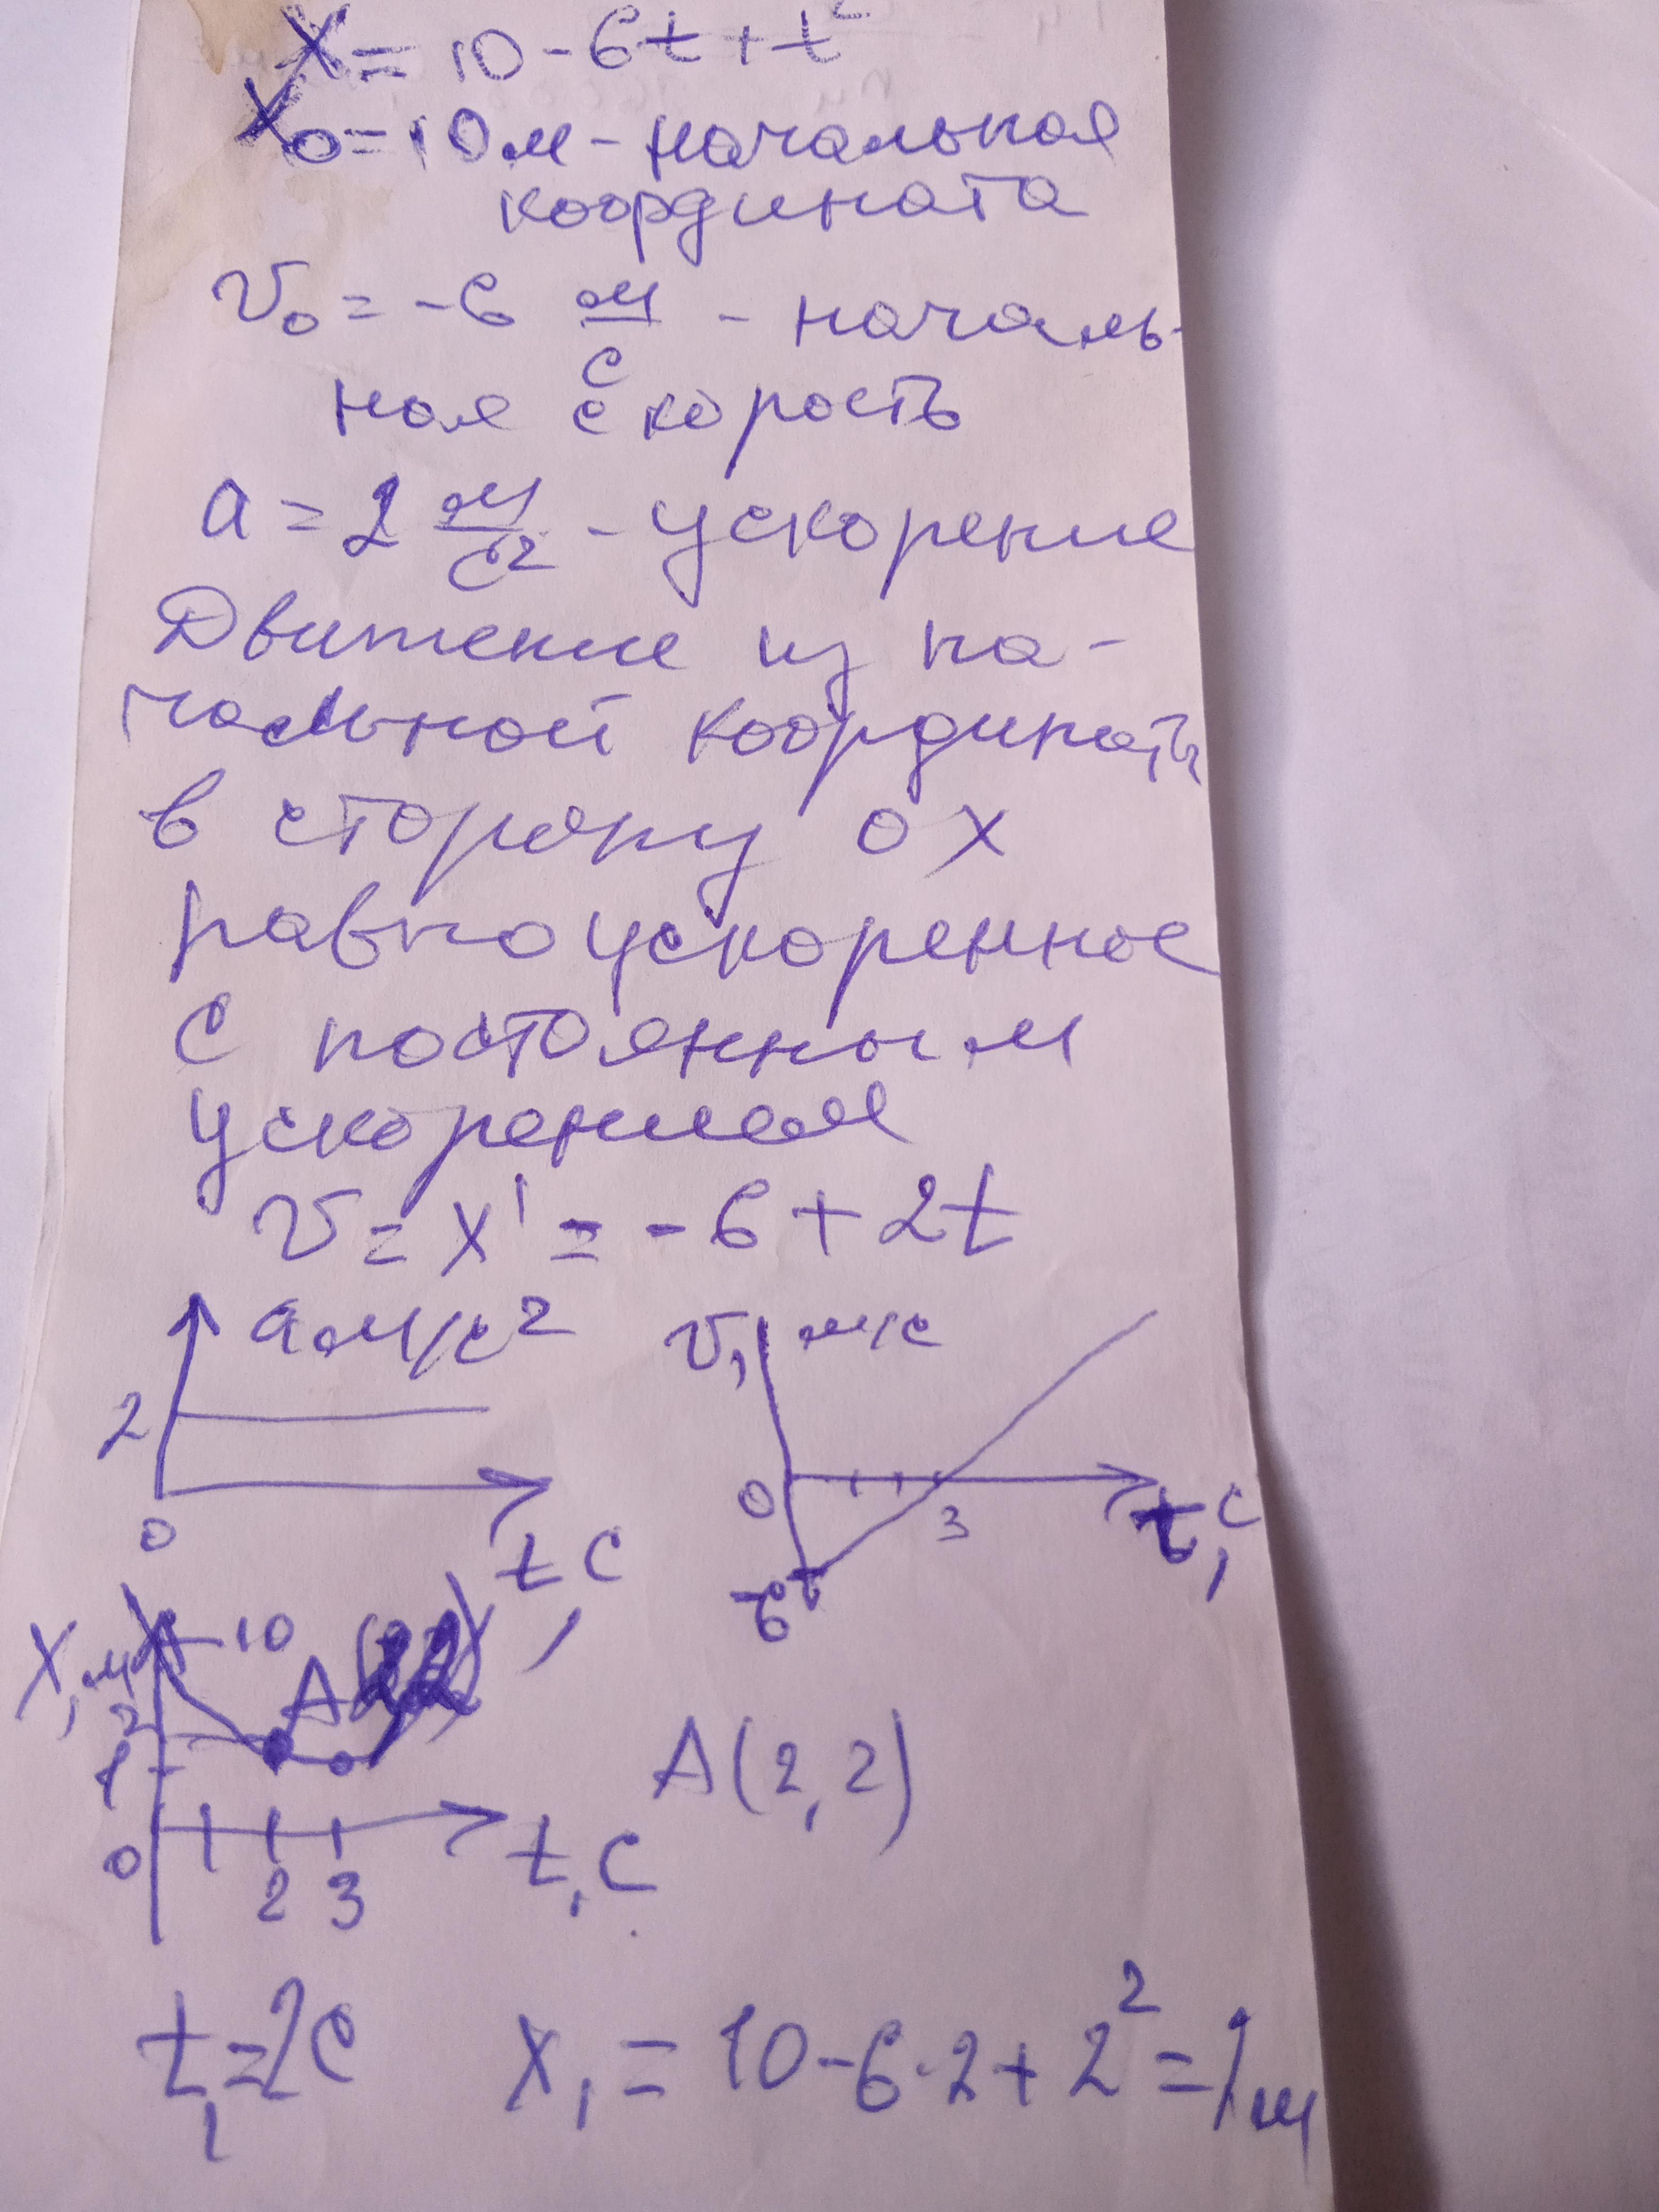 x = 10 - 6t + t²
x₀ = 10 м - начальная
координата
v₀ = -6 м/с - началь-
ная скорость
a = 2 м/с² - ускорение
Движение из на-
чальной координаты
в сторону ox
равноускоренное
с постоянным
ускорением
v = x' = -6 + 2t
a м/с² v, м/с
2
0 3
0 t, с
t, с -6
x, м 10
A(2,2)
2
1 A(2,2)
0 2 3 t, с
t₁ = 2c x₁ = 10 - 6·2 + 2² = 2м